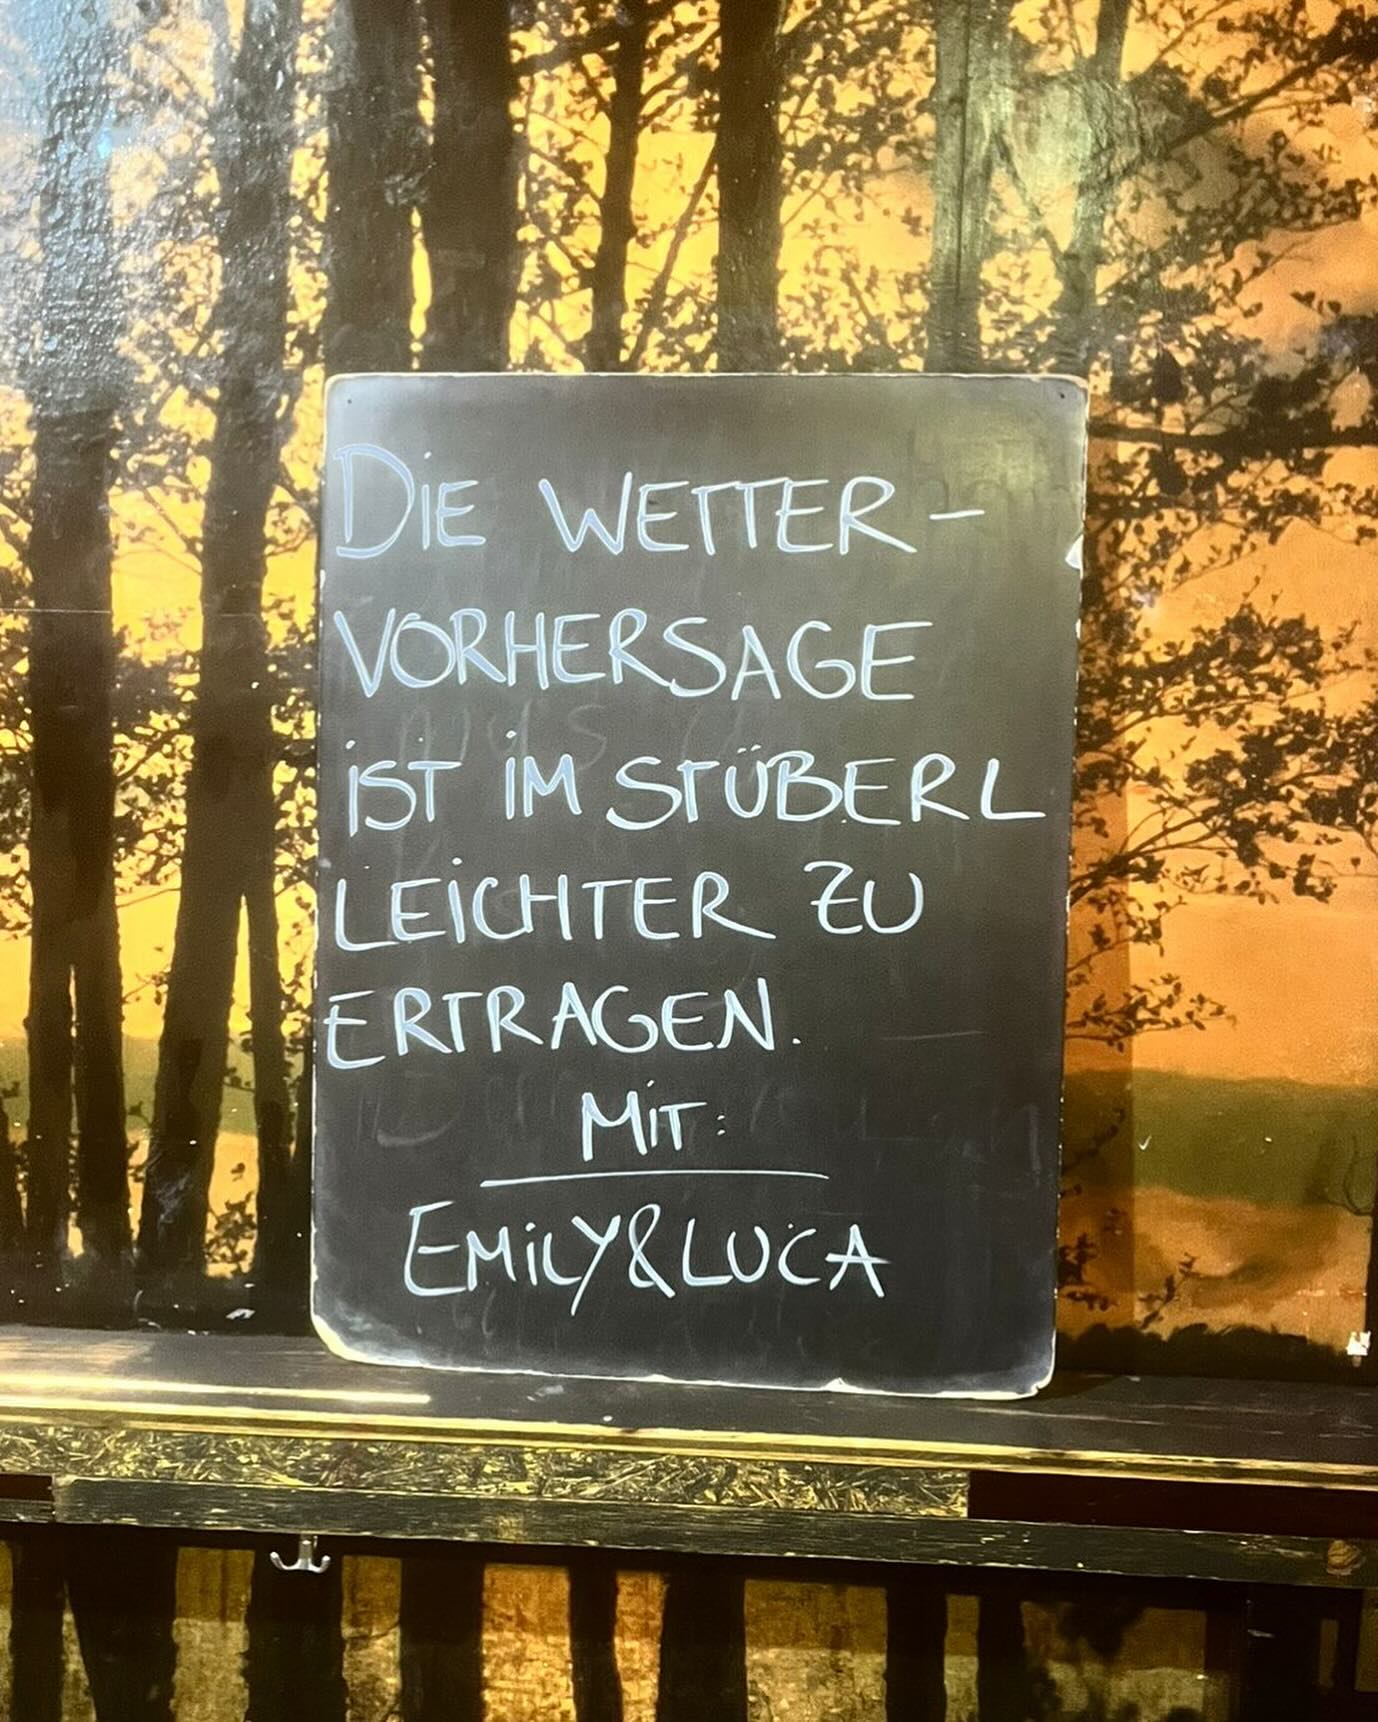 DIE WETTER-
VORHERSAGE
IST IM STÜBERL
LEICHTER ZU
ERTRAGEN.
MIT:
EMILY&LUCA